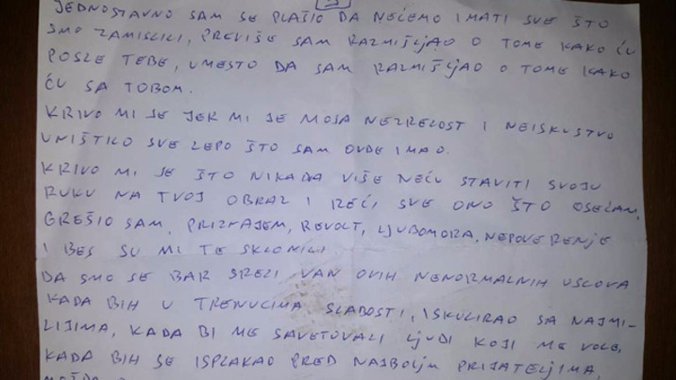 3
JEDNOSTAVNO SAM SE PLAŠIO DA NEĆEMO IMATI SVE ŠTO
SMO ZAMISLILI, PREVIŠE SAM RAZMIŠLJAO O TOME KAKO ĆU
POSLE TEBE, UMESTO DA SAM RAZMIŠLJAO O TOME KAKO
ĆU SA TOBOM.
KRIVO MI JE JER MI JE MOJA NEZRELOST I NEISKUSTVO
UNIŠTILO SVE LEPO ŠTO SAM OVDE IMAO.
KRIVO MI JE ŠTO NIKADA VIŠE NEĆU STAVITI SVOJU
RUKU NA TVOJ OBRAZ I REĆI SVE ONO ŠTO OSEĆAM.
GREŠIO SAM, PRIZNAJEM, REVOLT, LJUBOMORA, NEPOVERENJE
I BES SU MI TE SKLONILI.
DA SMO SE BAR SRELI VAN OVIH NENORMALNIH USLOVA
KADA BIH U TRENUCIMA SLABOSTI, ISKULIRAO SA NAJMI-
LIJIMA, KADA BI ME SAVETOVALI LJUDI KOJI ME VOLE,
KADA BIH SE ISPLAKAO PRED NAJBOLJIM PRIJATELJIMA,